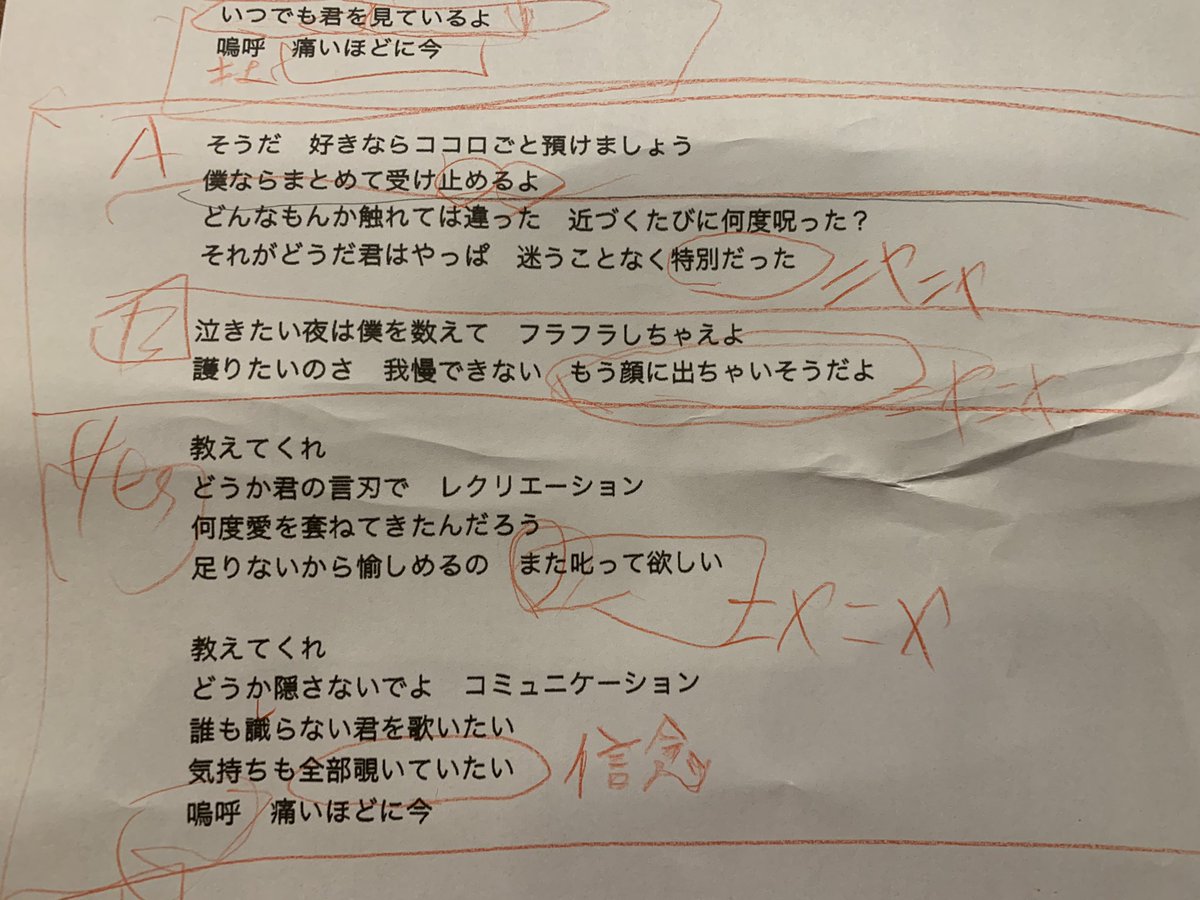 いつでも君を見ているよ
嗚呼　痛いほどに今
A
そうだ　好きならココロごと預けましょう
僕ならまとめて受け止めるよ
どんなもんか触れては違った　近づくたびに何度呪った？
それがどうだ君はやっぱ　迷うことなく特別だった
泣きたい夜は僕を数えて　フラフラしちゃえよ
護りたいのさ　我慢できない　もう顔に出ちゃいそうだよ
教えてくれ
どうか君の言刃で　レクリエーション
何度愛を套ねてきたんだろう
足りないから愉しめるの　また叱って欲しい
教えてくれ
どうか隠さないでよ　コミュニケーション
誰も識らない君を歌いたい
気持ちも全部覗いていたい
信念
嗚呼　痛いほどに今